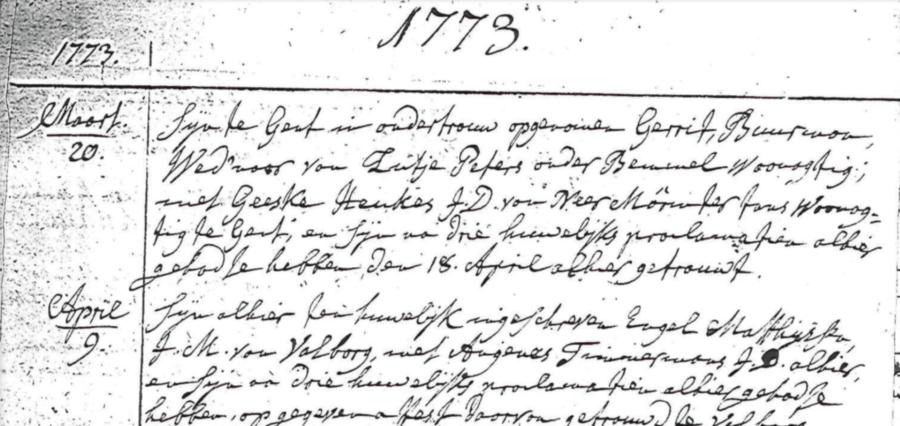 1773.
1773.
Maart.
20.
Sijn te Gent in ondertrouw opgenomen Gerrit, Buurman,
Wed'naar van Lutje Peters onder Bemmel Woonagtig;
met Geeske Henkes J.D. van Neer Mörmter tans Woonag=
tig te Gent, en sijn na drie huwelijks proclamatien alhier
gehad te hebben, den 18. April alhier getrouwt.
April
9.
Sijn alhier ten huwelijk ingeschreven Engel Matthijssen,
J. M. van Valborg, met Timmermans J. D. alhier,
en sijn na drie huwelijks proclamatien alhier gehad te
hebben, op gegeven attest daarvan getrouwd te Valborg